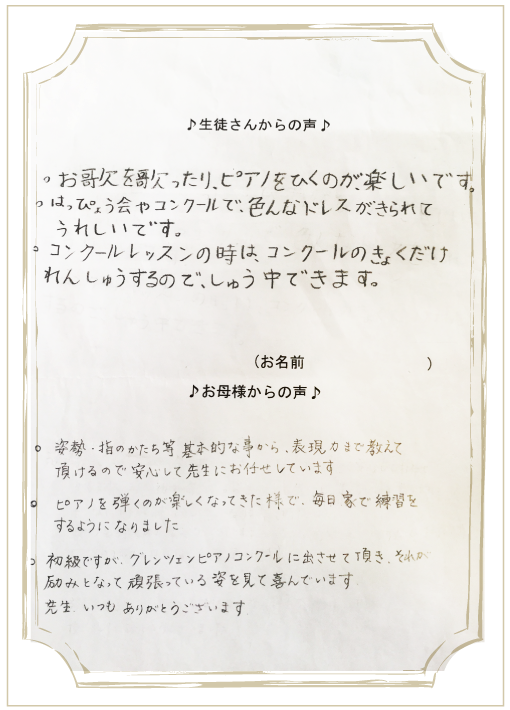 ♪生徒さんからの声♪
。お歌欠を歌欠ったり、ピアノをひくのが、楽しいです。
。はっぴょう会やコンクールで、色んなドレスが、きられて
うれしいです。
。コンクールレッスンの時は、コンクールのきょくだけ
れんしゅうするので、しゅう中できます。
(お名前 )
♪お母様からの声♪
。姿勢・指のかたち等基本的な事から、表現力まで教えて
頂けるので安心して先生にお任せしています
。ピアノを弾くのが楽しくなってきた様で、毎日家で練習を
するようになりました
。初級ですが、グレンツェンピアノコンクールに出させて頂き、それが
励みとなって頑張っている姿を見て喜んでいます
先生、いつもありがとうございます